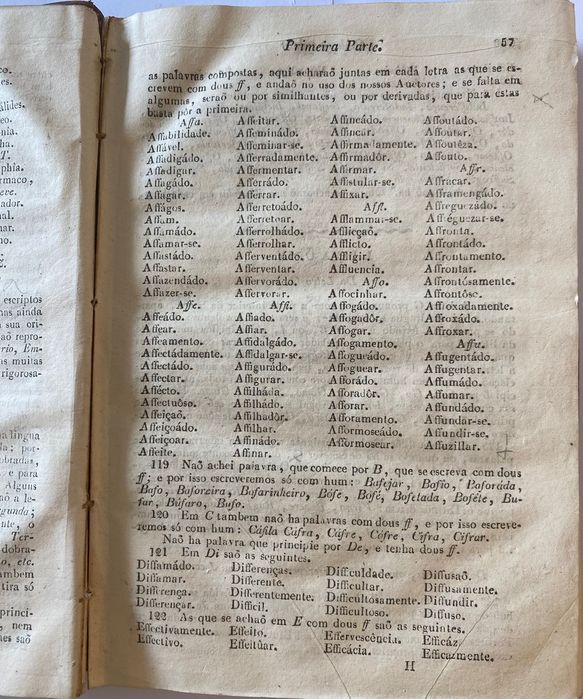 Primeira Parte. 57
as palavras compostas, aqui acharaõ juntas em cada letra as que se es-
crevem com dous ff, e andaõ no uso dos nossos Auctores; e se falta em
algumas, seraõ ou por similhantes, ou por derivadas, que para estas
basta pôr a primeira.
Affa.
Affabilidade.
Affável.
Affadigádo.
Affadigar.
Affagádo.
Affagar.
Affágos.
Affam.
Affamádo.
Affamar-se.
Affastádo.
Affastar.
Affazendádo.
Affazer-se.
Affe.
Affeádo.
Affear.
Affeamento.
Affectádamente.
Affectádo.
Affectar.
Affécto.
Affectuôso.
Affeiçaõ.
Affeiçoádo.
Affeiçoar.
Affeite.
Affeitar.
Affeminádo.
Affeminar-se.
Afferradamente.
Affermentar.
Afferrádo.
Afferrar.
Afferretoádo.
Afferretoar.
Afferrolhádo.
Afferrolhar.
Afferventádo.
Afferventar.
Affervorádo.
Affervorar.
Affi.
Affiado.
Affiar.
Affidalgádo.
Affidalgar-se.
Affigurádo.
Affigurar.
Affilháda.
Affilhádo.
Affilhadôr.
Affilhar.
Affinádo.
Affinar.
Affincádo.
Affincar.
Affirmadamente.
Affirmadôr.
Affirmar.
Affistular-se.
Affixar.
Affl.
Afflammar-se.
Afflicçaõ.
Afflicto.
Affligir.
Affluencia.
Affo.
Affocinhar.
Affogádo.
Affogadôr.
Affogar.
Affogamento.
Affogueádo.
Affoguear.
Afforádo.
Afforadôr.
Afforar.
Afforamento.
Afformoseádo.
Afformosear.
Affoutádo.
Affoutar.
Affoutêza.
Affouto.
Affr.
Affracar.
Afframengádo.
Affreguezádo.
Affréguezar-se.
Affronta.
Affrontádo.
Affrontamento.
Affrontar.
Affrontósamente.
Affrontôso.
Affroxadamente.
Affroxádo.
Affroxar.
Affu.
Affugentádo.
Affugentar.
Affumádo.
Affumar.
Affundádo.
Affundar-se.
Affundir-se.
Affuzillar.
119 Naõ achei palavra, que comece por B, que se escreva com dous
ff; e por isso escreveremos só com hum: Bafejar, Bafio, Baforáda,
Bafo, Baforeira, Bafarinheiro, Bófe, Bofé, Bofetada, Boféte, Bu-
far, Búfaro, Bufo.
120 Em C tambem naõ ha palavras com dous ff, e por isso escreve-
remos só com hum: Cáfila Cáfra, Cáfre, Cófre, Cifra, Cifrar.
Naõ ha palavra que principie por De, e tenha dous ff.
121 Em Di saõ as seguintes.
Diffamádo. Differenças. Difficuldade. Diffusaõ.
Diffamar. Differente. Difficultar. Diffusamente.
Differença. Differentemente. Difficultosamente. Diffundir.
Differençar. Difficil. Difficultoso. Diffuso.
122 As que se achaõ em E com dous ff saõ as seguintes.
Effectivamente. Effeito. Effervescência. Efficáz.
Effectivo. Effeitûar. Efficácia. Efficazmente.
H